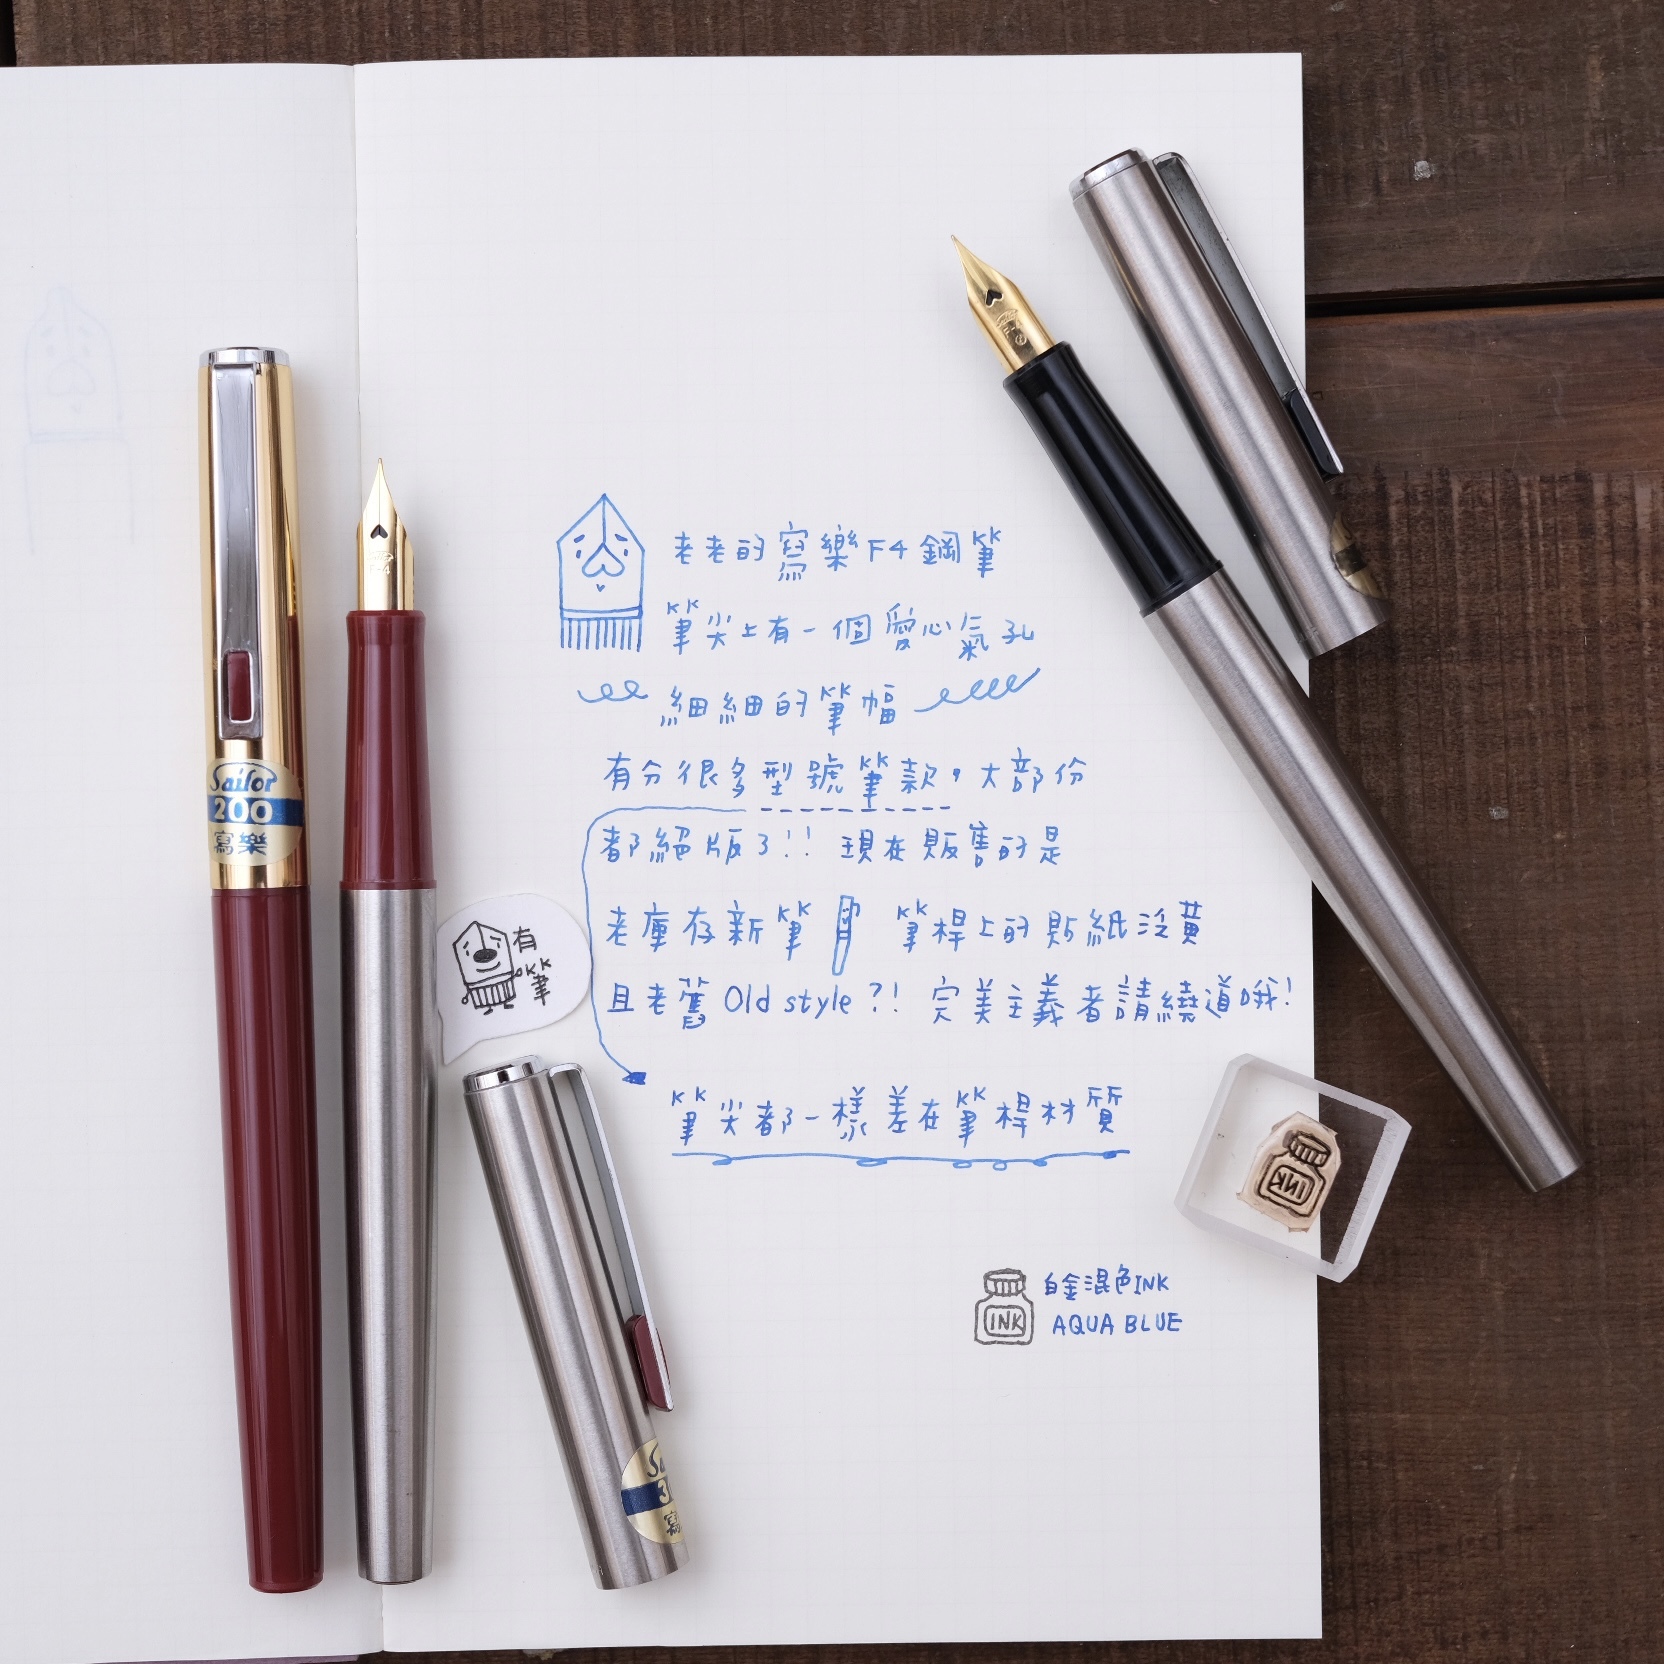 老老的寫樂F4鋼筆
筆尖上有一個愛心氣孔
細細的筆幅
有分很多型號筆款，大部份
都絕版了!! 現在販售的是
老庫存新筆 筆桿上的貼紙泛黃
且老舊 Old style?! 完美主義者請繞道哦!
筆尖都一樣差在筆桿材質
白金混色INK
AQUA BLUE
INK
有筆
Sailor
200
寫樂
F-4
INK